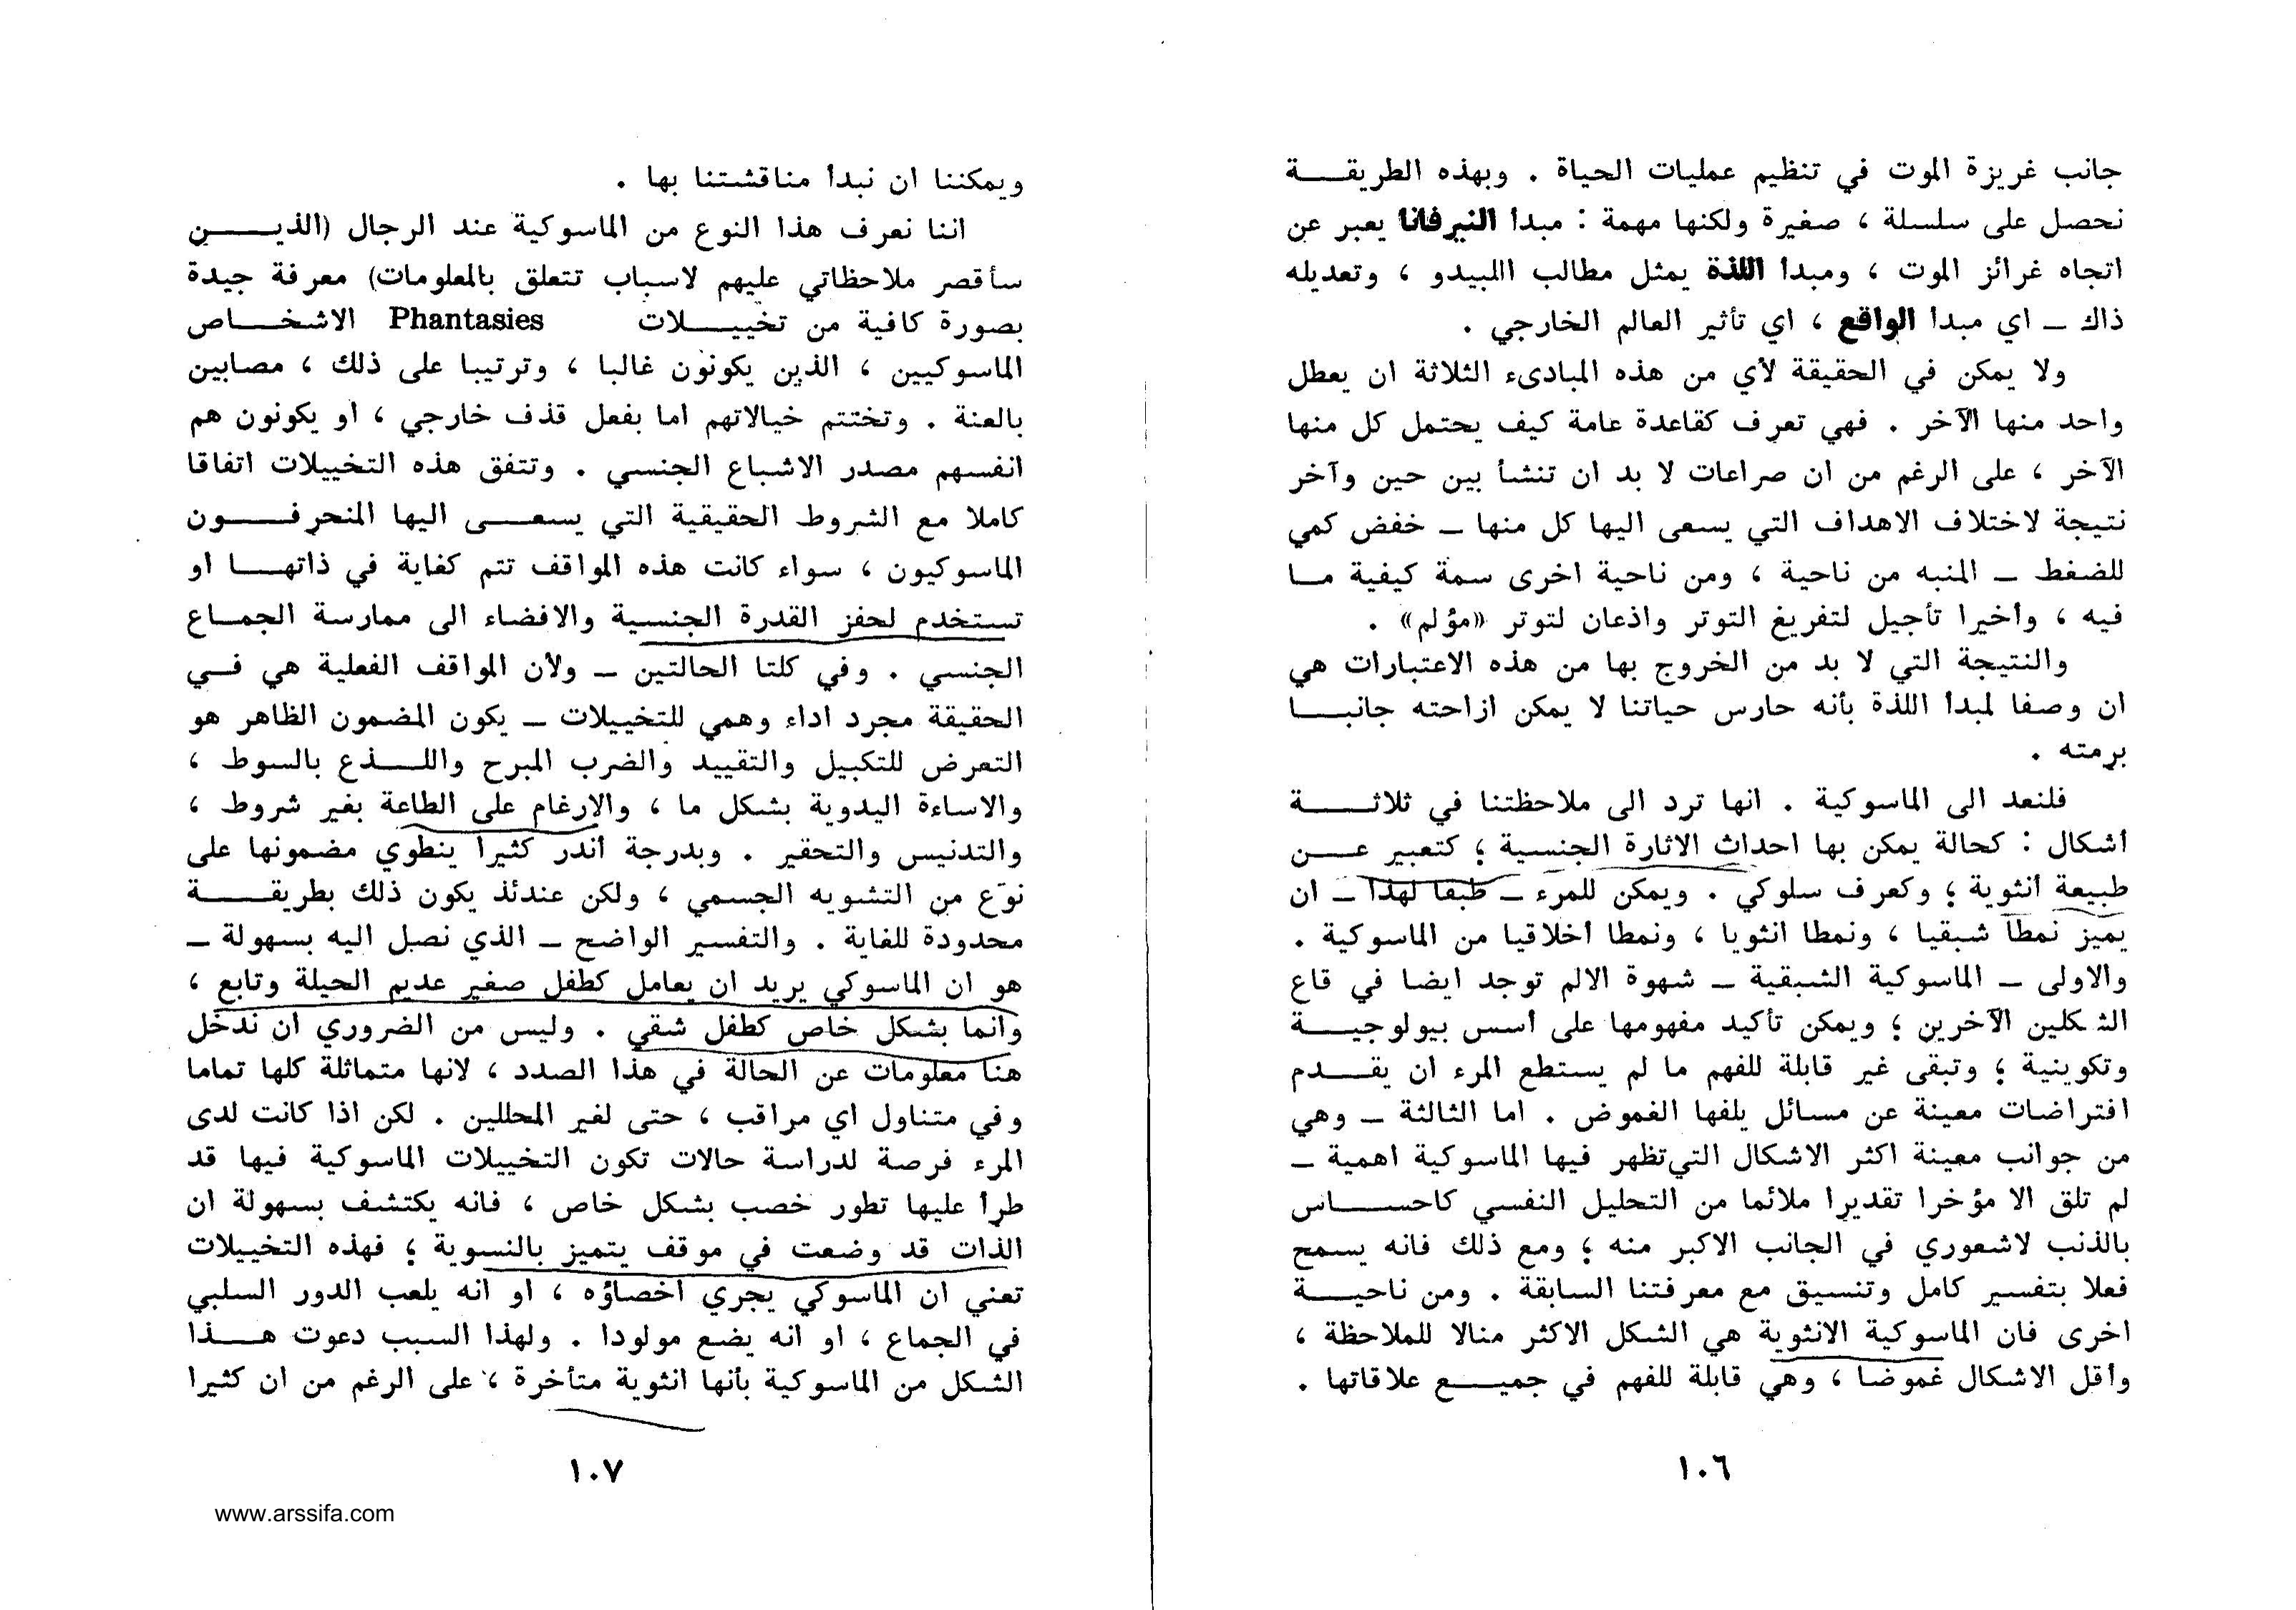 جانب غريزة الموت في تنظيم عمليات الحياة . وبهذه الطريقــة
نحصل على سلسلة ، صغيرة ولكنها مهمة : مبدأ النيرفانا يعبر عن
اتجاه غرائز الموت ، ومبدأ اللذة يمثل مطالب الليبيدو ، وتعديله
ذاك ــ اي مبدأ الواقع ، اي تأثير العالم الخارجي .
ولا يمكن في الحقيقة لأي من هذه المبادىء الثلاثة ان يعطل
واحد منها الآخر . فهي تعرف كقاعدة عامة كيف يحتمل كل منها
الآخر ، على الرغم من ان صراعات لا بد ان تنشأ بين حين وآخر
نتيجة لاختلاف الاهداف التي يسعى اليها كل منها ــ خفض كمي
للضغط ــ المنبه من ناحية ، ومن ناحية اخرى سمة كيفية مــا
فيه ، وأخيرا تأجيل لتفريغ التوتر واذعان لتوتر «مؤلم» .
والنتيجة التي لا بد من الخروج بها من هذه الاعتبارات هي
ان وصفا لمبدأ اللذة بأنه حارس حياتنا لا يمكن ازاحته جانبــا
برمته .
فلنعد الى الماسوكية . انها ترد الى ملاحظتنا في ثلاثــة
أشكال : كحالة يمكن بها احداث الاثارة الجنسية ؛ كتعبير عــن
طبيعة أنثوية ؛ وكعرف سلوكي . ويمكن للمرء ــ طبقا لهذا ــ ان
يميز نمطا شبقيا ، ونمطا انثويا ، ونمطا أخلاقيا من الماسوكية .
والاولى ــ الماسوكية الشبقية ــ شهوة الالم توجد ايضا في قاع
الشكلين الآخرين ؛ ويمكن تأكيد مفهومها على أسس بيولوجيــة
وتكوينية ؛ وتبقى غير قابلة للفهم ما لم يستطع المرء ان يقــدم
افتراضات معينة عن مسائل يلفها الغموض . اما الثالثة ــ وهي
من جوانب معينة اكثر الاشكال التي تظهر فيها الماسوكية اهمية ــ
لم تلق الا مؤخرا تقديرا ملائما من التحليل النفسي كاحســاس
بالذنب لاشعوري في الجانب الاكبر منه ؛ ومع ذلك فانه يسمح
فعلا بتفسير كامل وتنسيق مع معرفتنا السابقة . ومن ناحيــة
اخرى فان الماسوكية الانثوية هي الشكل الاكثر منالا للملاحظة ،
وأقل الاشكال غموضا ، وهي قابلة للفهم في جميــع علاقاتها .
١٠٦
ويمكننا ان نبدأ مناقشتنا بها .
اننا نعرف هذا النوع من الماسوكية عند الرجال (الذيــن
سأقصر ملاحظاتي عليهم لاسباب تتعلق بالمعلومات) معرفة جيدة
بصورة كافية من تخييــلات Phantasies الاشخــاص
الماسوكيين ، الذين يكونون غالبا ، وترتيبا على ذلك ، مصابين
بالعنة . وتختتم خيالاتهم اما بفعل قذف خارجي ، او يكونون هم
انفسهم مصدر الاشباع الجنسي . وتتفق هذه التخييلات اتفاقا
كاملا مع الشروط الحقيقية التي يسعــى اليها المنحرفــون
الماسوكيون ، سواء كانت هذه المواقف تتم كغاية في ذاتهــا او
تستخدم لحفز القدرة الجنسية والافضاء الى ممارسة الجمــاع
الجنسي . وفي كلتا الحالتين ــ ولأن المواقف الفعلية هي فــي
الحقيقة مجرد اداء وهمي للتخييلات ــ يكون المضمون الظاهر هو
التعرض للتكبيل والتقييد والضرب المبرح واللــذع بالسوط ،
والاساءة اليدوية بشكل ما ، والارغام على الطاعة بغير شروط ،
والتدنيس والتحقير . وبدرجة أندر كثيرا ينطوي مضمونها على
نوع من التشويه الجسمي ، ولكن عندئذ يكون ذلك بطريقــة
محدودة للغاية . والتفسير الواضح ــ الذي نصل اليه بسهولة ــ
هو ان الماسوكي يريد ان يعامل كطفل صغير عديم الحيلة وتابع ،
وانما بشكل خاص كطفل شقي . وليس من الضروري ان ندخل
هنا معلومات عن الحالة في هذا الصدد ، لانها متماثلة كلها تماما
وفي متناول اي مراقب ، حتى لغير المحللين . لكن اذا كانت لدى
المرء فرصة لدراسة حالات تكون التخييلات الماسوكية فيها قد
طرأ عليها تطور خصب بشكل خاص ، فانه يكتشف بسهولة ان
الذات قد وضعت في موقف يتميز بالنسوية ؛ فهذه التخييلات
تعني ان الماسوكي يجري اخصاؤه ، او انه يلعب الدور السلبي
في الجماع ، او انه يضع مولودا . ولهذا السبب دعوت هــذا
الشكل من الماسوكية بأنها انثوية متأخرة ، على الرغم من ان كثيرا
١٠٧
www.arssifa.com